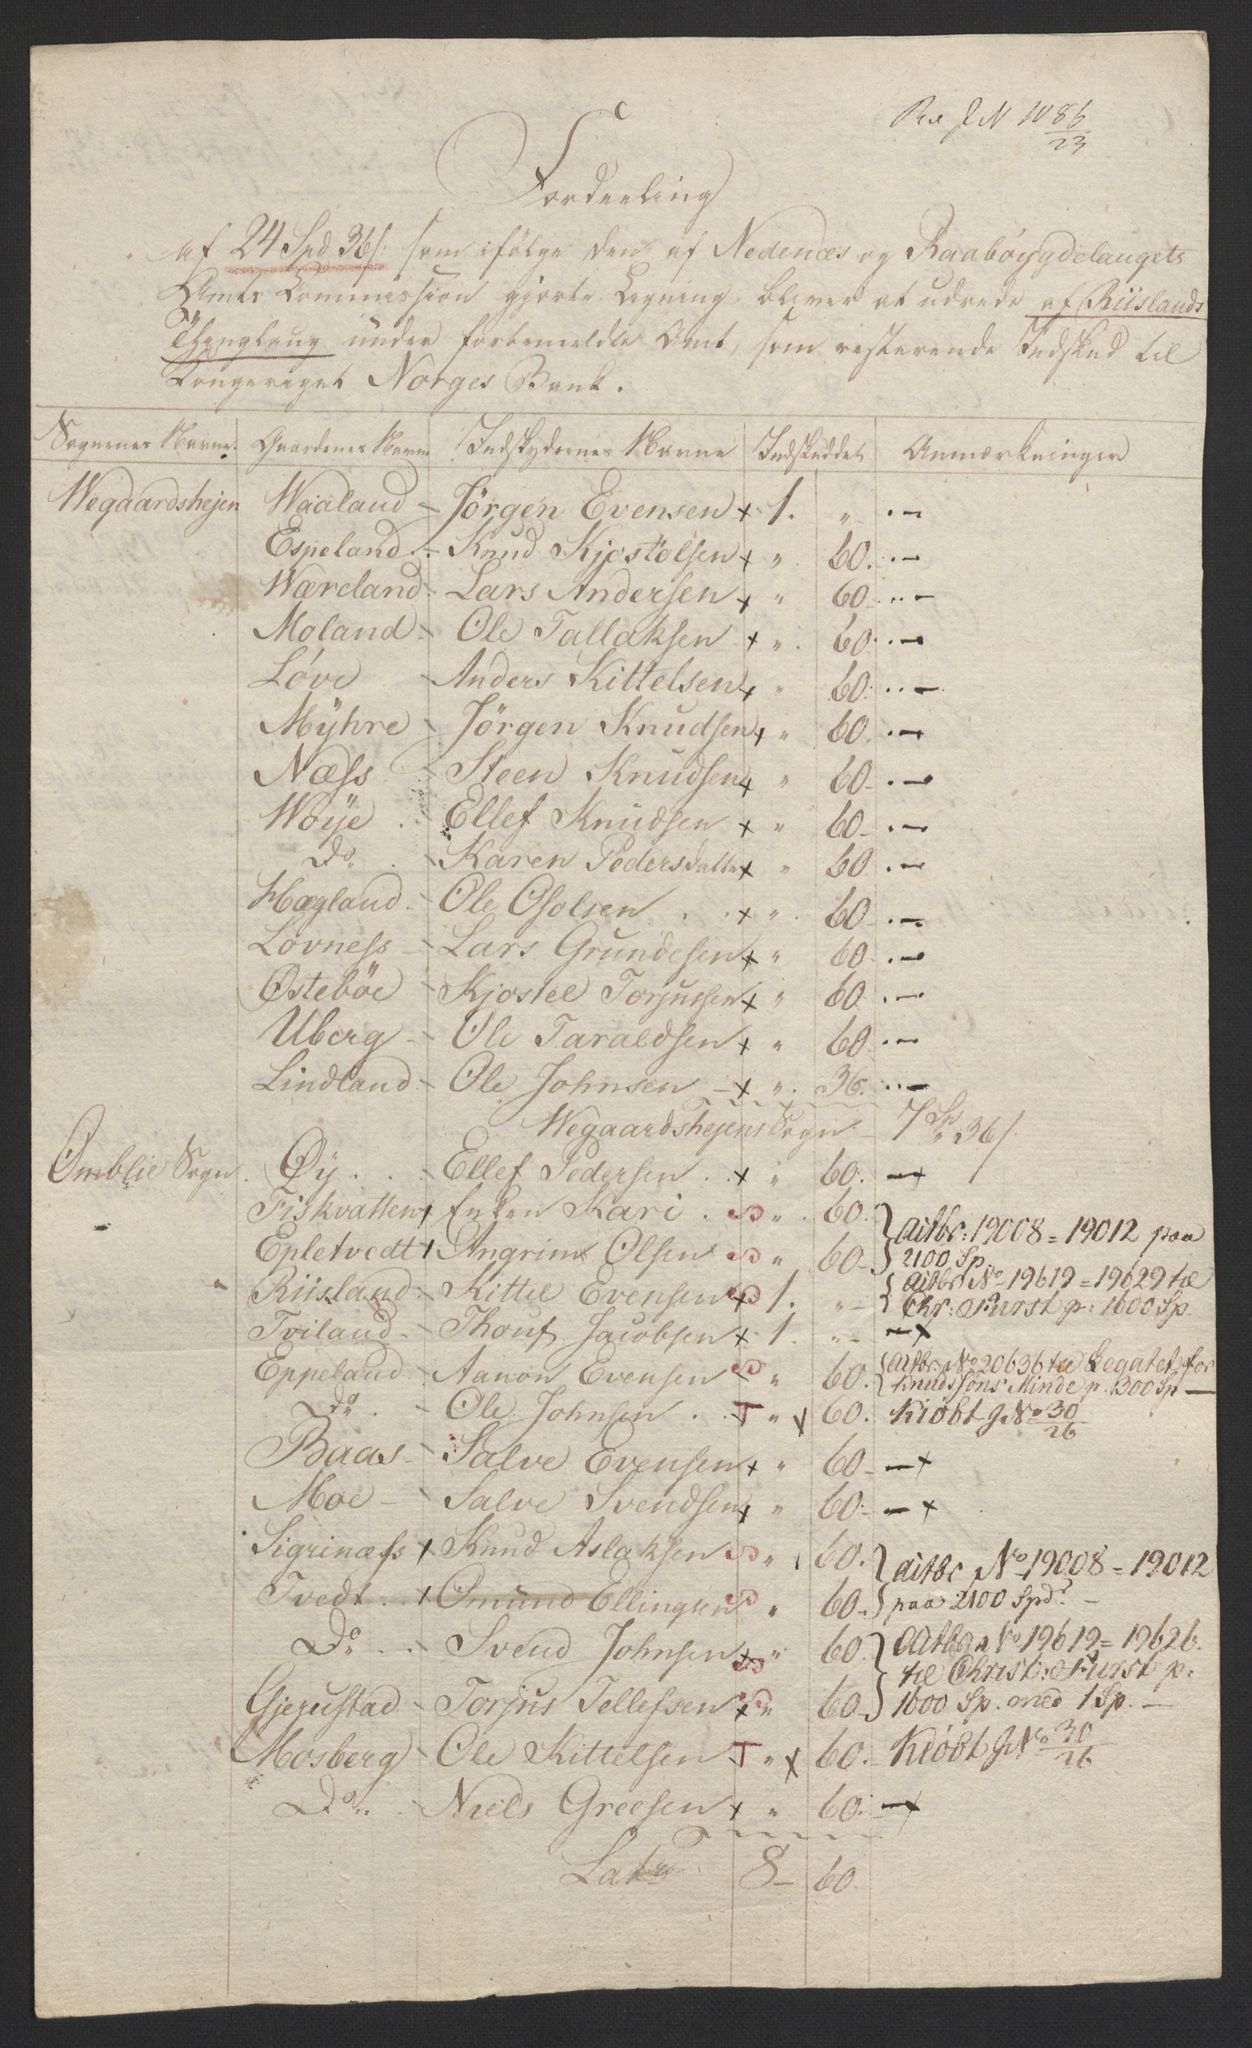 Fordeeling
af 24 Spd 36 s. som ifølge den af Nedenæs og Raabøygdelaugets
Amts Commission gjorte Ligning bliver at udrede af Riislands
Thinglaug under forbemeldte Amt, som resterende Indskud til
Kongeriget Norges Bank.
Sognenes Navne. Gaardenes Navne Indskydernes Navne Indskuddet Anmærkninger
Wegaardshejen Waaland - Jørgen Evensen x 1. " . —
Espeland - Knud Kjostolsen x " 60. . —
Wæreland - Lars Andersen x " 60 . . —
Moland - Ole Tallaksen x " 60. . —
Løve - Anders Kittelsen x " 60. . —
Myhre - Jørgen Knudsen x " 60. . —
Næss - Steen Knudsen x " 60 . —
Woÿe . Ellef Knudsen x " 60 . —
Do . - Karen Pedersdatter x " 60 . —
Hægland - Ole Osolsen . . x " 60 . —
Lovness - Lars Grundesen x " 60 . —
Østebøe - Kjostel Torjussen x " 60 . —
Uberg - Ole Taraldsen x " 60 . —
Lindland - Ole Johnsen - x " 36. . —
Wegaardshejens Sogn - 7 Sp 36 s.
Omblie Sogn. Øy. . Ellef Pedersen . x " 60. — x
Fiskvatten x Enken Kari . " 60.
} aitbr: 19008 = 19012 paa
Epletvedt x Angrim Olsen " 60 } 2100 Sp.
Riisland - Kittil Evensen x 1. " { aitbr No 19619 = 19629 til
Chr: Furst p: 1600 Sp.
Tviland - Thouf Jacobsen x 1. " — x
Eppeland - Aanon Evensen " 60. { aitbr No 20636 til Legatet for
Knudssøns Minde p. 300 Sp —
Do . - Ole Johnsen . . T " x 60. Kiøbt J No 30/26
Baas - Salve Evensen x " 60 — x
Moe - Salve Svendsen x " 60. — x
Sigrinæss x Knud Aslaksen " 60. } aitbr No 19008 = 19012
Tvedt . x Omund Ellingsen " 60. } paa 2100 Spd. —
Do . . Svend Johnsen x " 60 } aitbr No 19619 = 19626
til Christ: Furst p:
Gjerustad - Torjus Tellefsen x " 60. } 1600 Sp. med 1 Sp. —
Mosberg - Ole Kittelsen T " x 60. Kiøbt J No 30/26
Do . . - Niels Greesen x " 60. — x
Lats 8 - 60.